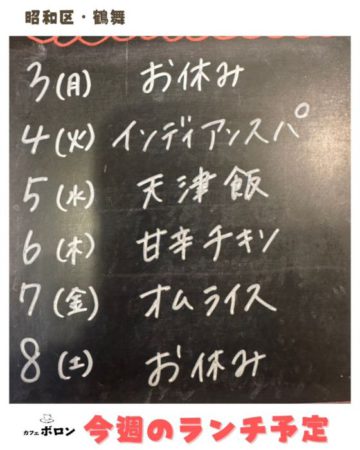 昭和区・鶴舞
3(月) お休み
4(火) インディアンスパ
5(水) 天津飯
6(木) 甘辛チキン
7(金) オムライス
8(土) お休み
カフェ ボロン 今週のランチ予定